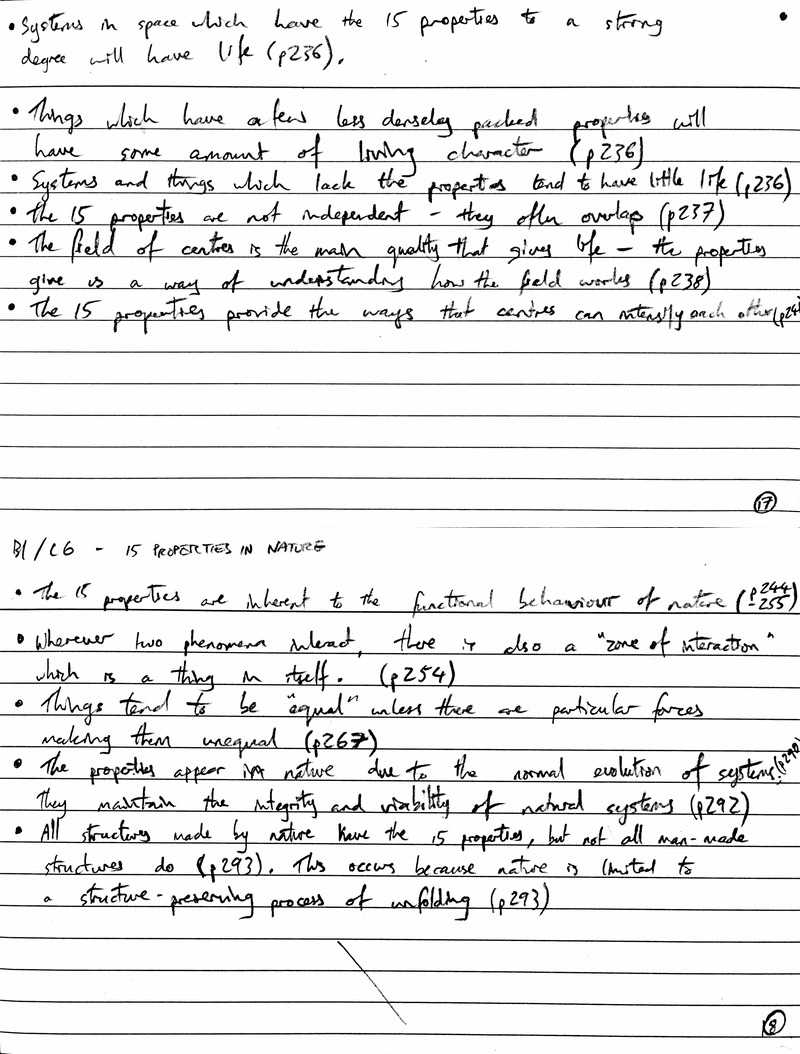 • Systems in space which have the 15 properties to a strong
degree will have life (p236).
• Things which have a few less densely packed properties will
have some amount of living character (p236)
• Systems and things which lack the properties tend to have little life (p236)
• The 15 properties are not independent – they often overlap (p237)
• The field of centres is the main quality that gives life – the properties
give us a way of understanding how the field works (p238)
• The 15 properties provide the ways that centres can intensify each other (p24
17
B1/C6 - 15 PROPERTIES IN NATURE
• The 15 properties are inherent to the functional behaviour of nature (p244
-255)
• Wherever two phenomena interact, there is also a "zone of interaction"
which is a thing in itself. (p254)
• Things tend to be "equal" unless there are particular forces
making them unequal (p267)
• The properties appear in nature due to the normal evolution of systems. (p290)
They maintain the integrity and viability of natural systems (p292)
• All structures made by nature have the 15 properties, but not all man-made
structures do (p293). This occurs because nature is limited to
a structure-preserving process of unfolding (p293)